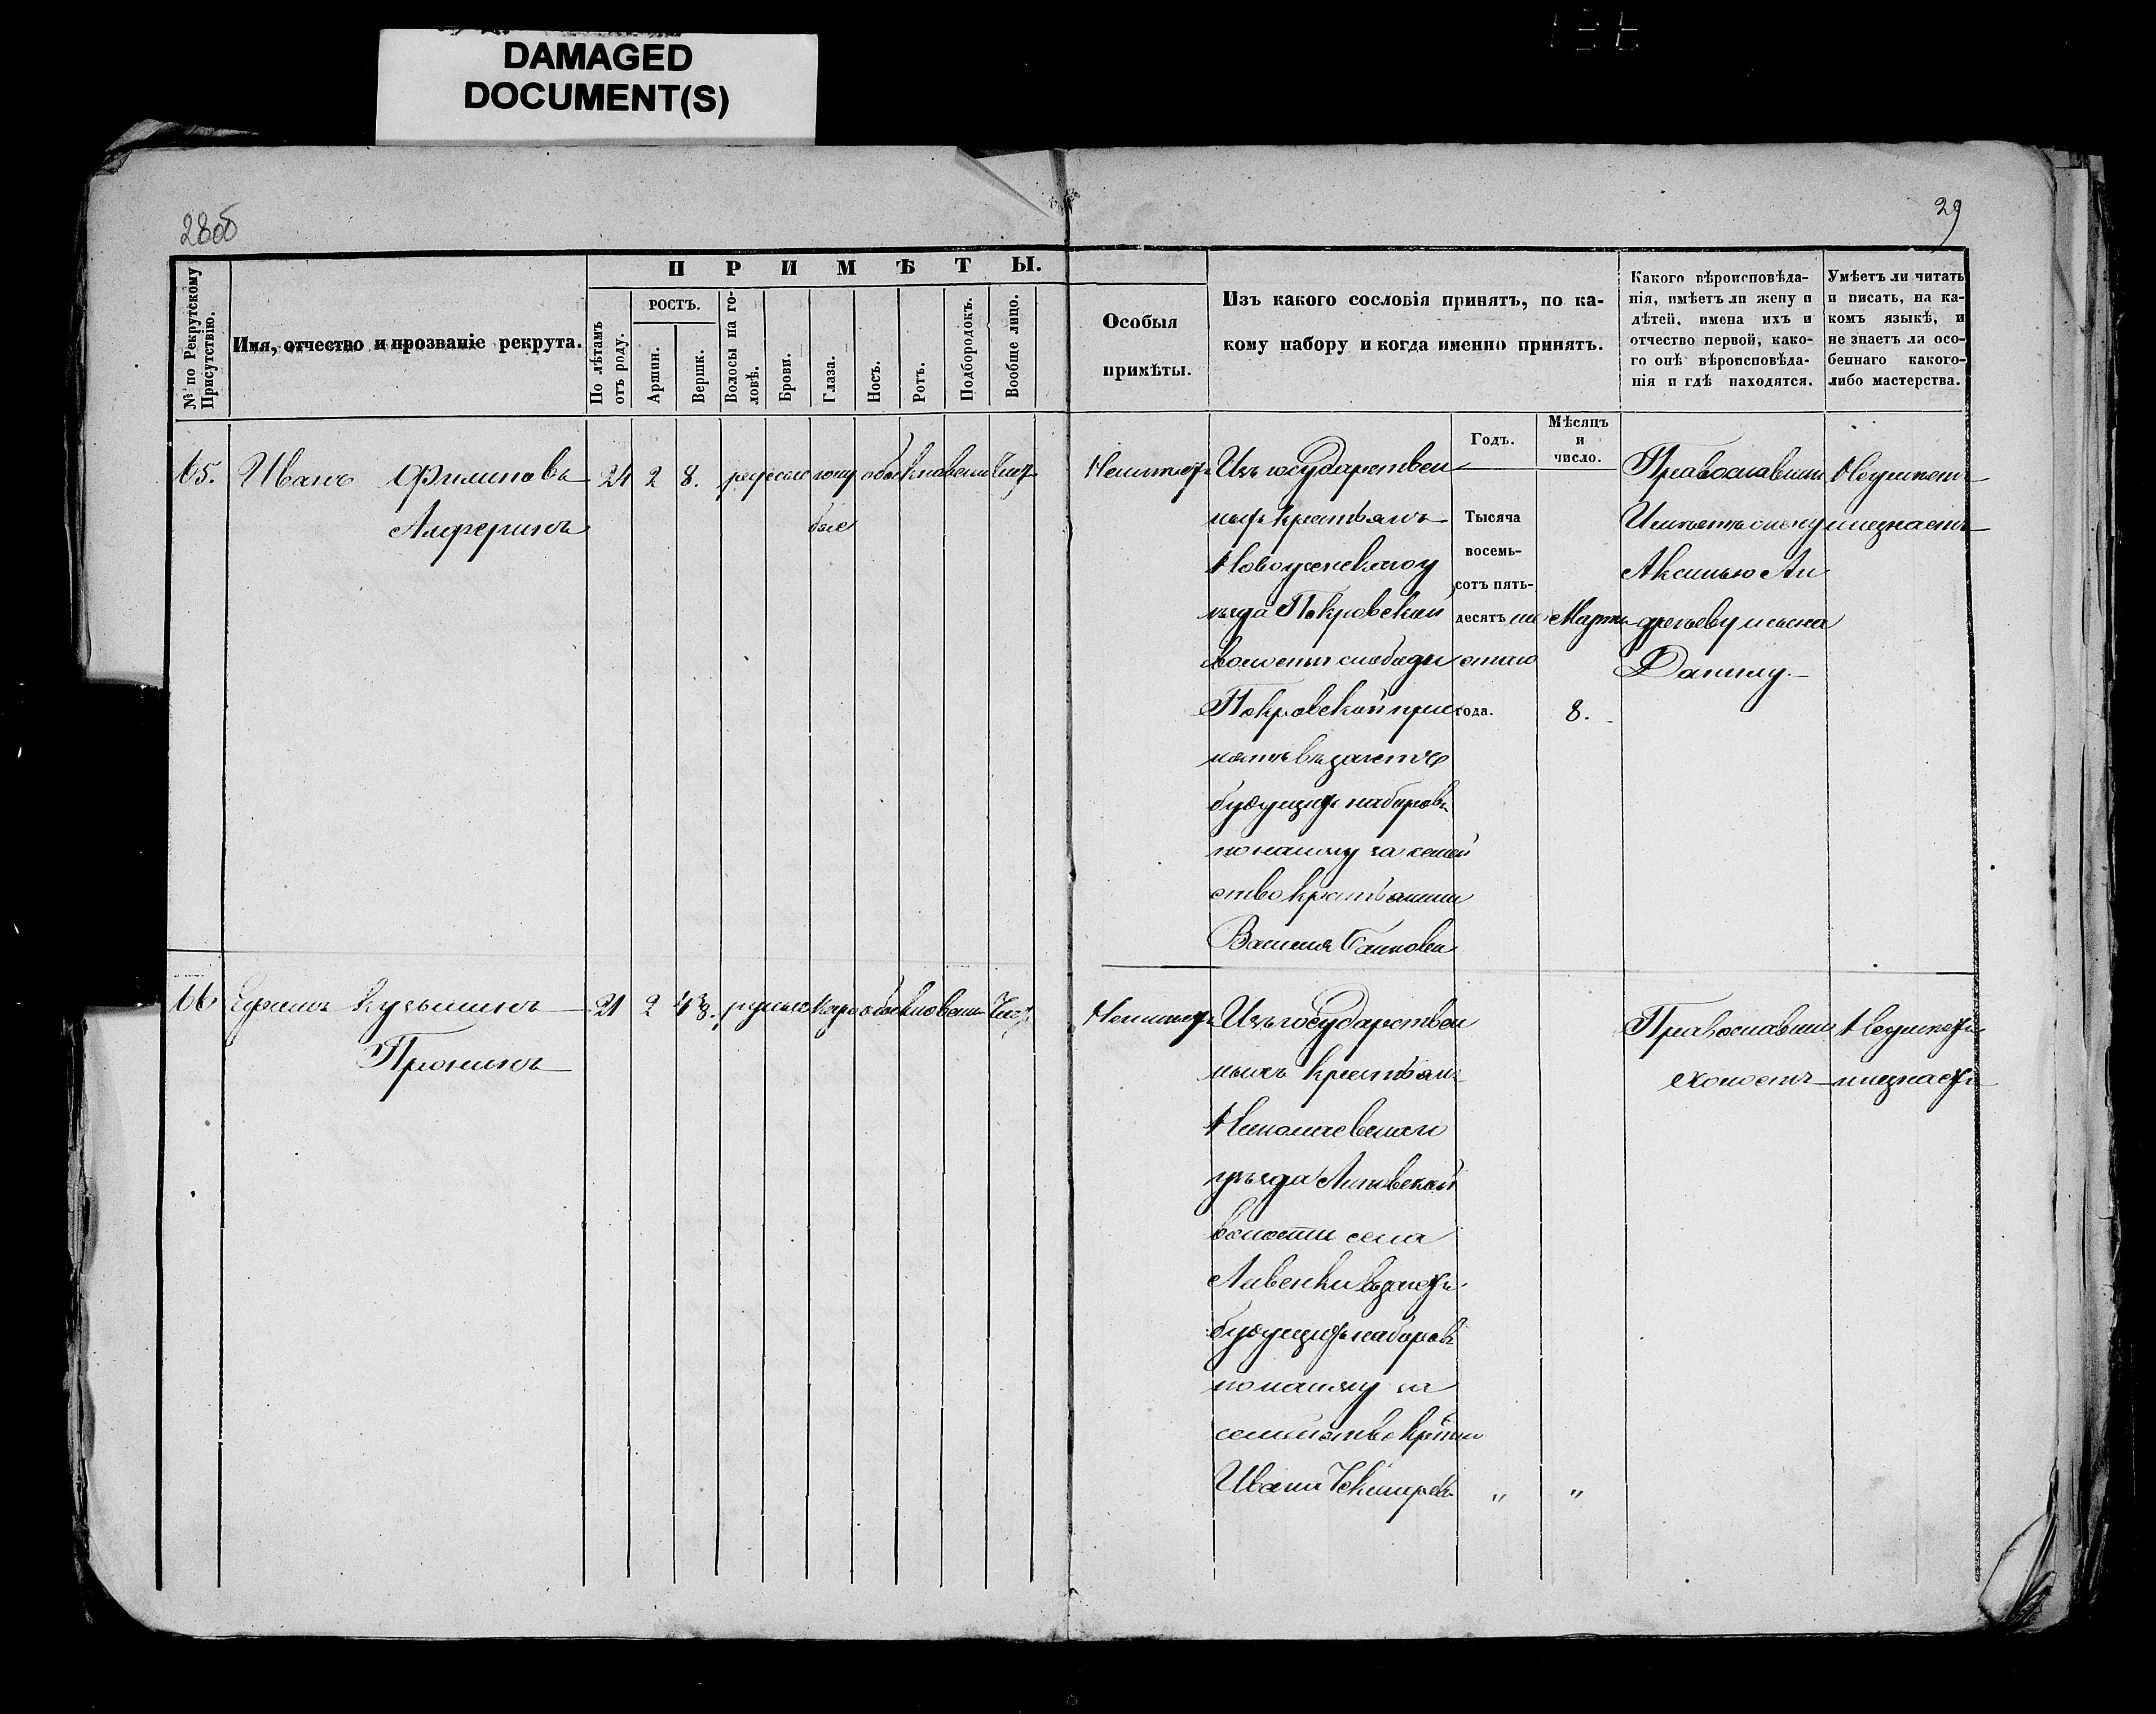 DAMAGED
DOCUMENT(S)
28об
29
№ по Рекрутскому Присутствію.
Имя, отчество и прозваніе рекрута.
ПРИМѢТЫ.
По лѣтамъ отъ роду.
РОСТЪ.
Аршин.
Вершк.
Волосы на головѣ.
Брови.
Глаза.
Носъ.
Ротъ.
Подбородокъ.
Вообще лицо.
Особыя
примѣты.
Изъ какого сословія принятъ, по ка-
кому набору и когда именно принятъ.
Какого вѣроисповѣда-
нія, имѣетъ ли жену и
дѣтей, имена ихъ и
отчество первой, како-
го онѣ вѣроисповѣда-
нія и гдѣ находятся.
Умѣетъ ли читать
и писать, на ка-
комъ языкѣ, и
не знаетъ ли осо-
беннаго какого-
либо мастерства.
Годъ.
Мѣсяцъ
и
число.
65. Иванъ Филиповъ 24 2 8. русые голу обыкновенны чист
Алферинъ бые
Неимѣетъ
Изъ государствен
ныхъ крестьянъ
Новоузенскаго у
ѣзда Покровской
волости слободы
Покровской при
нятъ въ зачетъ
будущихъ наборовъ
по найму за семей
ство крестьянина
Василія
Тысяча
восемь-
сотъ пять-
десятъ ше
стаго
года.
Марта
8.
Православный
Имѣетъ жену
Аксинью Ан
дрееву и сына
Данилу.
Неумѣетъ
и незнаетъ
66 Ефимъ Кузьминъ 21 2 4 3/8. русые каро обыкновенны чист
Пронинъ
Неимѣетъ
Изъ государствен
ныхъ крестьянъ
Николаевскаго
уѣзда Липовской
волости села
Ливенки въ зачетъ
будущихъ наборовъ
по найму за
семейство крстни
Ивана
" "
Православный
холостъ
Неумѣетъ
и незнаетъ